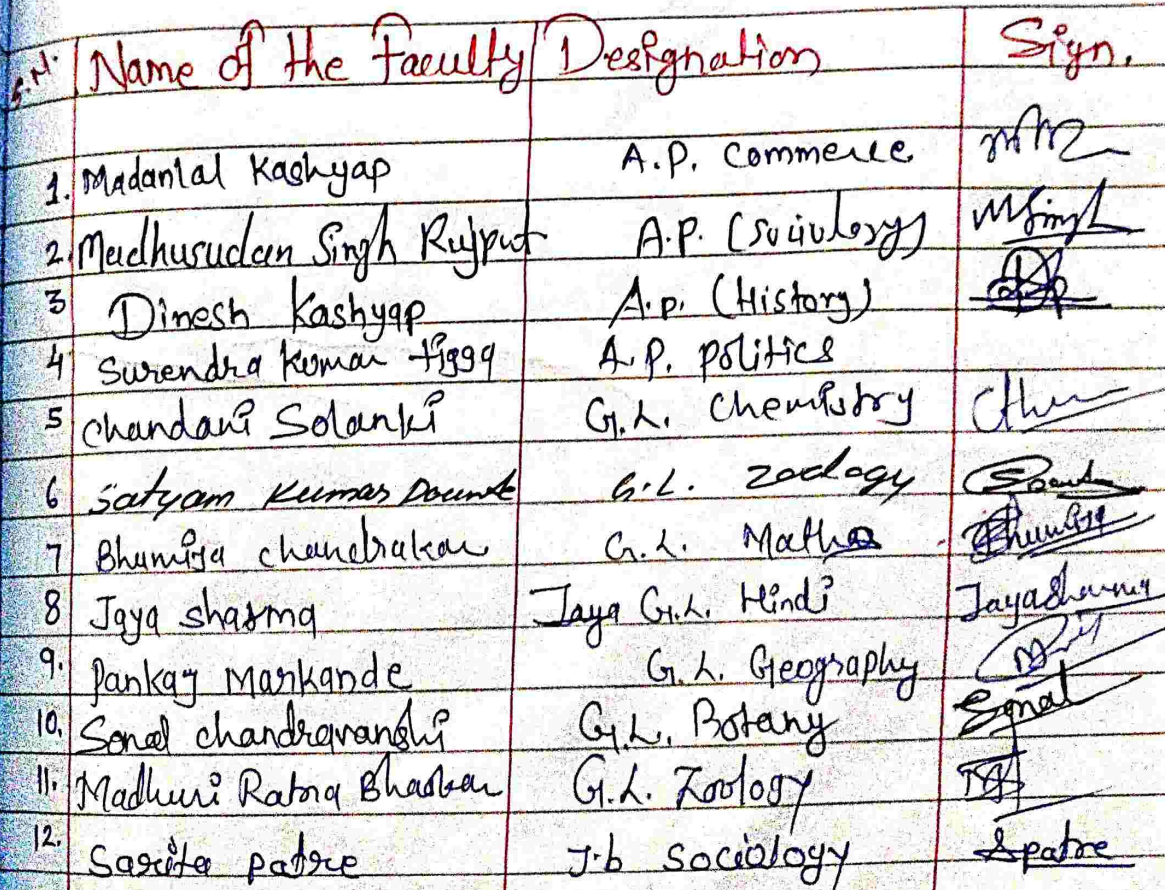 S.N. Name of the Faculty Designation Sign.
1. Madanlal Kashyap A.P. Commerce
2. Madhusudan Singh Rajput A.P. (Sociology) MSingh
3 Dinesh Kashyap A.P. (History)
4 Surendra Kumar tigga A.P. politics
5 Chandani Solanki G.L. Chemistry
6 Satyam Kumar G.L. Zoology
7 Bhumija chandrakar G.L. Maths Bhumija
8 Jaya sharma Jaya G.L. Hindi Jayasharma
9. Pankaj Markande G.L. Geography
10. Sonal chandravanshi G.L. Botany Sonal
11. Madhuri Ratna Bhaskar G.L. Zoology
12. Sarita patre J.b sociology Spatre